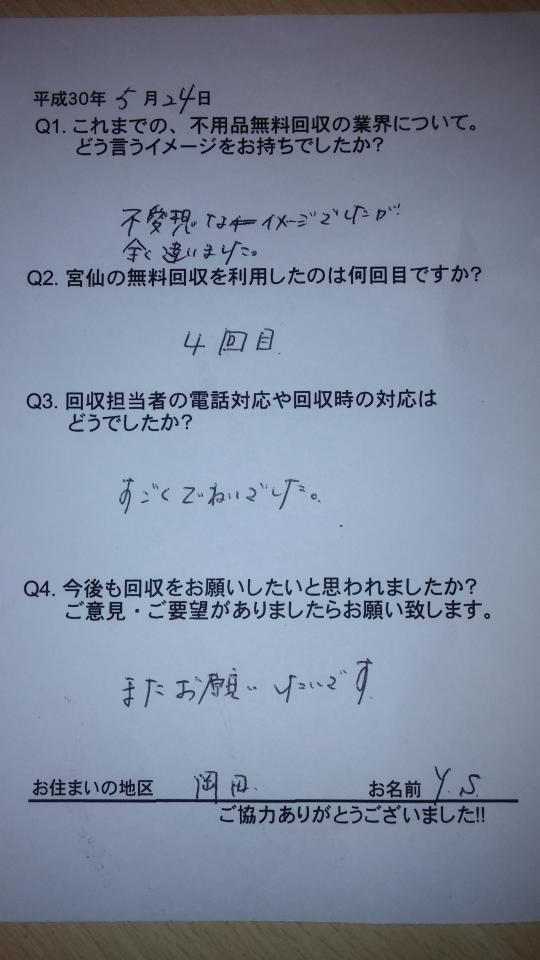 平成30年 5 月 24 日
Q1. これまでの、不用品無料回収の業界について。
どう言うイメージをお持ちでしたか?
不愛想なイメージでしたが
全く違いました。
Q2. 宮仙の無料回収を利用したのは何回目ですか?
4回目
Q3. 回収担当者の電話対応や回収時の対応は
どうでしたか?
すごくてねいでした。
Q4. 今後も回収をお願いしたいと思われましたか?
ご意見・ご要望がありましたらお願い致します。
またお願いしたいです
お住まいの地区 岡田 お名前 Y.S.
ご協力ありがとうございました!!